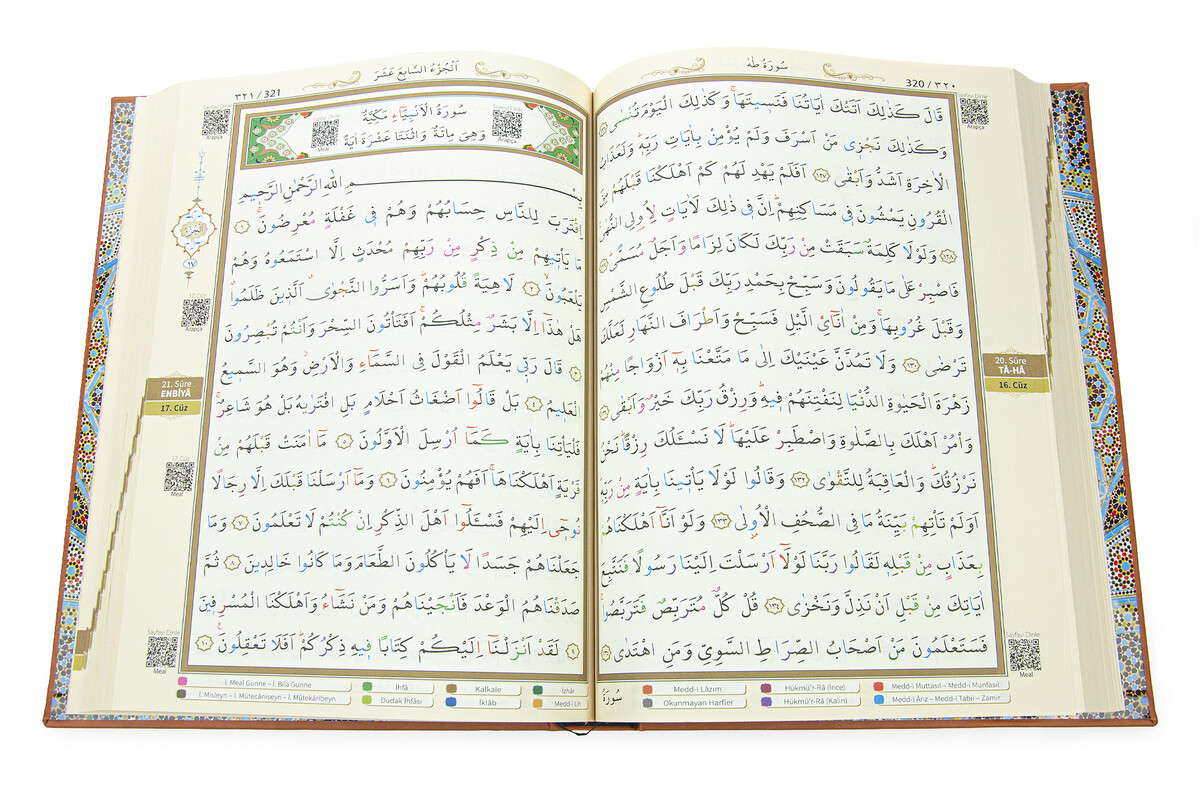 سُورَةُ طٰهٰ
320 / ٣٢٠
Sayfayı Dinle
Arapça
قَالَ كَذٰلِكَ اَتَتْكَ اٰيَاتُنَا فَنَسٖيتَهَاۚ وَكَذٰلِكَ الْيَوْمَ تُنْسٰى
وَكَذٰلِكَ نَجْزٖى مَنْ اَسْرَفَ وَلَمْ يُؤْمِنْ بِاٰيَاتِ رَبِّهٖۜ وَلَعَذَابُ
الْاٰخِرَةِ اَشَدُّ وَاَبْقٰى ﴿١٢٧﴾ اَفَلَمْ يَهْدِ لَهُمْ كَمْ اَهْلَكْنَا قَبْلَهُمْ مِنَ
الْقُرُونِ يَمْشُونَ فٖى مَسَاكِنِهِمْۜ اِنَّ فٖى ذٰلِكَ لَاٰيَاتٍ لِاُولِى النُّهٰى
﴿١٢٨﴾ وَلَوْلَا كَلِمَةٌ سَبَقَتْ مِنْ رَبِّكَ لَكَانَ لِزَامًا وَاَجَلٌ مُسَمًّىۜ
فَاصْبِرْ عَلٰى مَا يَقُولُونَ وَسَبِّحْ بِحَمْدِ رَبِّكَ قَبْلَ طُلُوعِ الشَّمْسِ
وَقَبْلَ غُرُوبِهَاۚ وَمِنْ اٰنَٓائِ الَّيْلِ فَسَبِّحْ وَاَطْرَافَ النَّهَارِ لَعَلَّكَ
تَرْضٰى ﴿١٣٠﴾ وَلَا تَمُدَّنَّ عَيْنَيْكَ اِلٰى مَا مَتَّعْنَا بِهٖٓ اَزْوَاجًا مِنْهُمْ
زَهْرَةَ الْحَيٰوةِ الدُّنْيَا لِنَفْتِنَهُمْ فٖيهِۜ وَرِزْقُ رَبِّكَ خَيْرٌ وَاَبْقٰى
وَأْمُرْ اَهْلَكَ بِالصَّلٰوةِ وَاصْطَبِرْ عَلَيْهَاۜ لَا نَسْـَٔلُكَ رِزْقًاۜ نَحْنُ
نَرْزُقُكَۜ وَالْعَاقِبَةُ لِلتَّقْوٰى ﴿١٣٢﴾ وَقَالُوا لَوْلَا يَأْتٖينَا بِاٰيَةٍ مِنْ رَبِّهٖۜ
اَوَلَمْ تَأْتِهِمْ بَيِّنَةُ مَا فِى الصُّحُفِ الْاُولٰى ﴿١٣٣﴾ وَلَوْ اَنَّٓا اَهْلَكْنَاهُمْ
بِعَذَابٍ مِنْ قَبْلِهٖ لَقَالُوا رَبَّنَا لَوْلَٓا اَرْسَلْتَ اِلَيْنَا رَسُولًا فَنَتَّبِعَ
اٰيَاتِكَ مِنْ قَبْلِ اَنْ نَذِلَّ وَنَخْزٰى ﴿١٣٤﴾ قُلْ كُلٌّ مُتَرَبِّصٌ فَتَرَبَّصُواۚ
فَسَتَعْلَمُونَ مَنْ اَصْحَابُ الصِّرَاطِ السَّوِىِّ وَمَنِ اهْتَدٰى
20. Sûre
TÂ-HÂ
16. Cüz
Sayfayı Dinle
Meal
سُورَةُ
Medd-i Lâzım
Hükmü'r-Râ (İnce)
Medd-i Muttasıl – Medd-i Munfasıl
Okunmayan Harfler
Hükmü'r-Râ (Kalın)
Medd-i Ârız – Medd-i Tabiî – Zamir
٣٢١ / 321
اَلْجُزْءُ السَّابِعَ عَشَرَ
Sayfayı Dinle
Arapça
سُورَةُ الْاَنْبِيَٓاءِ مَكِّيَّةٌ
وَهِىَ مِائَةٌ وَاثْنَتَا عَشْرَةَ اٰيَةً
Sureyi Dinle
Arapça
Meal
بِسْمِ اللّٰهِ الرَّحْمٰنِ الرَّحٖيمِ
اِقْتَرَبَ لِلنَّاسِ حِسَابُهُمْ وَهُمْ فٖى غَفْلَةٍ مُعْرِضُونَۚ ﴿١﴾
مَا يَأْتٖيهِمْ مِنْ ذِكْرٍ مِنْ رَبِّهِمْ مُحْدَثٍ اِلَّا اسْتَمَعُوهُ وَهُمْ
يَلْعَبُونَۙ ﴿٢﴾ لَاهِيَةً قُلُوبُهُمْۜ وَاَسَرُّوا النَّجْوٰىۗ اَلَّذٖينَ ظَلَمُواۗ
هَلْ هٰذَٓا اِلَّا بَشَرٌ مِثْلُكُمْۚ اَفَتَأْتُونَ السِّحْرَ وَاَنْتُمْ تُبْصِرُونَ
﴿٣﴾ قَالَ رَبّٖى يَعْلَمُ الْقَوْلَ فِى السَّمَٓاءِ وَالْاَرْضِۘ وَهُوَ السَّمٖيعُ
الْعَلٖيمُ ﴿٤﴾ بَلْ قَالُٓوا اَضْغَاثُ اَحْلَامٍ بَلِ افْتَرٰيهُ بَلْ هُوَ شَاعِرٌۚ
فَلْيَأْتِنَا بِاٰيَةٍ كَمَٓا اُرْسِلَ الْاَوَّلُونَ ﴿٥﴾ مَٓا اٰمَنَتْ قَبْلَهُمْ مِنْ
قَرْيَةٍ اَهْلَكْنَاهَاۚ اَفَهُمْ يُؤْمِنُونَ ﴿٦﴾ وَمَٓا اَرْسَلْنَا قَبْلَكَ اِلَّا رِجَالًا
نُوحٖٓى اِلَيْهِمْ فَسْـَٔلُٓوا اَهْلَ الذِّكْرِ اِنْ كُنْتُمْ لَا تَعْلَمُونَ ﴿٧﴾ وَمَا
جَعَلْنَاهُمْ جَسَدًا لَا يَأْكُلُونَ الطَّعَامَ وَمَا كَانُوا خَالِدٖينَ ﴿٨﴾ ثُمَّ
صَدَقْنَاهُمُ الْوَعْدَ فَاَنْجَيْنَاهُمْ وَمَنْ نَشَٓاءُ وَاَهْلَكْنَا الْمُسْرِفٖينَ
﴿٩﴾ لَقَدْ اَنْزَلْنَٓا اِلَيْكُمْ كِتَابًا فٖيهِ ذِكْرُكُمْۜ اَفَلَا تَعْقِلُونَ۟ ﴿١٠﴾
Arapça
21. Sûre
ENBİYÂ
17. Cüz
17. Cüz
Meal
Sayfayı Dinle
Meal
İ. Meal Gunne – İ. Bila Gunne
İhfâ
Kalkale
İzhâr
İ. Misleyn – İ. Mütecâniseyn – İ. Mütekâribeyn
Dudak İhfâsı
İklâb
Medd-i Lîn